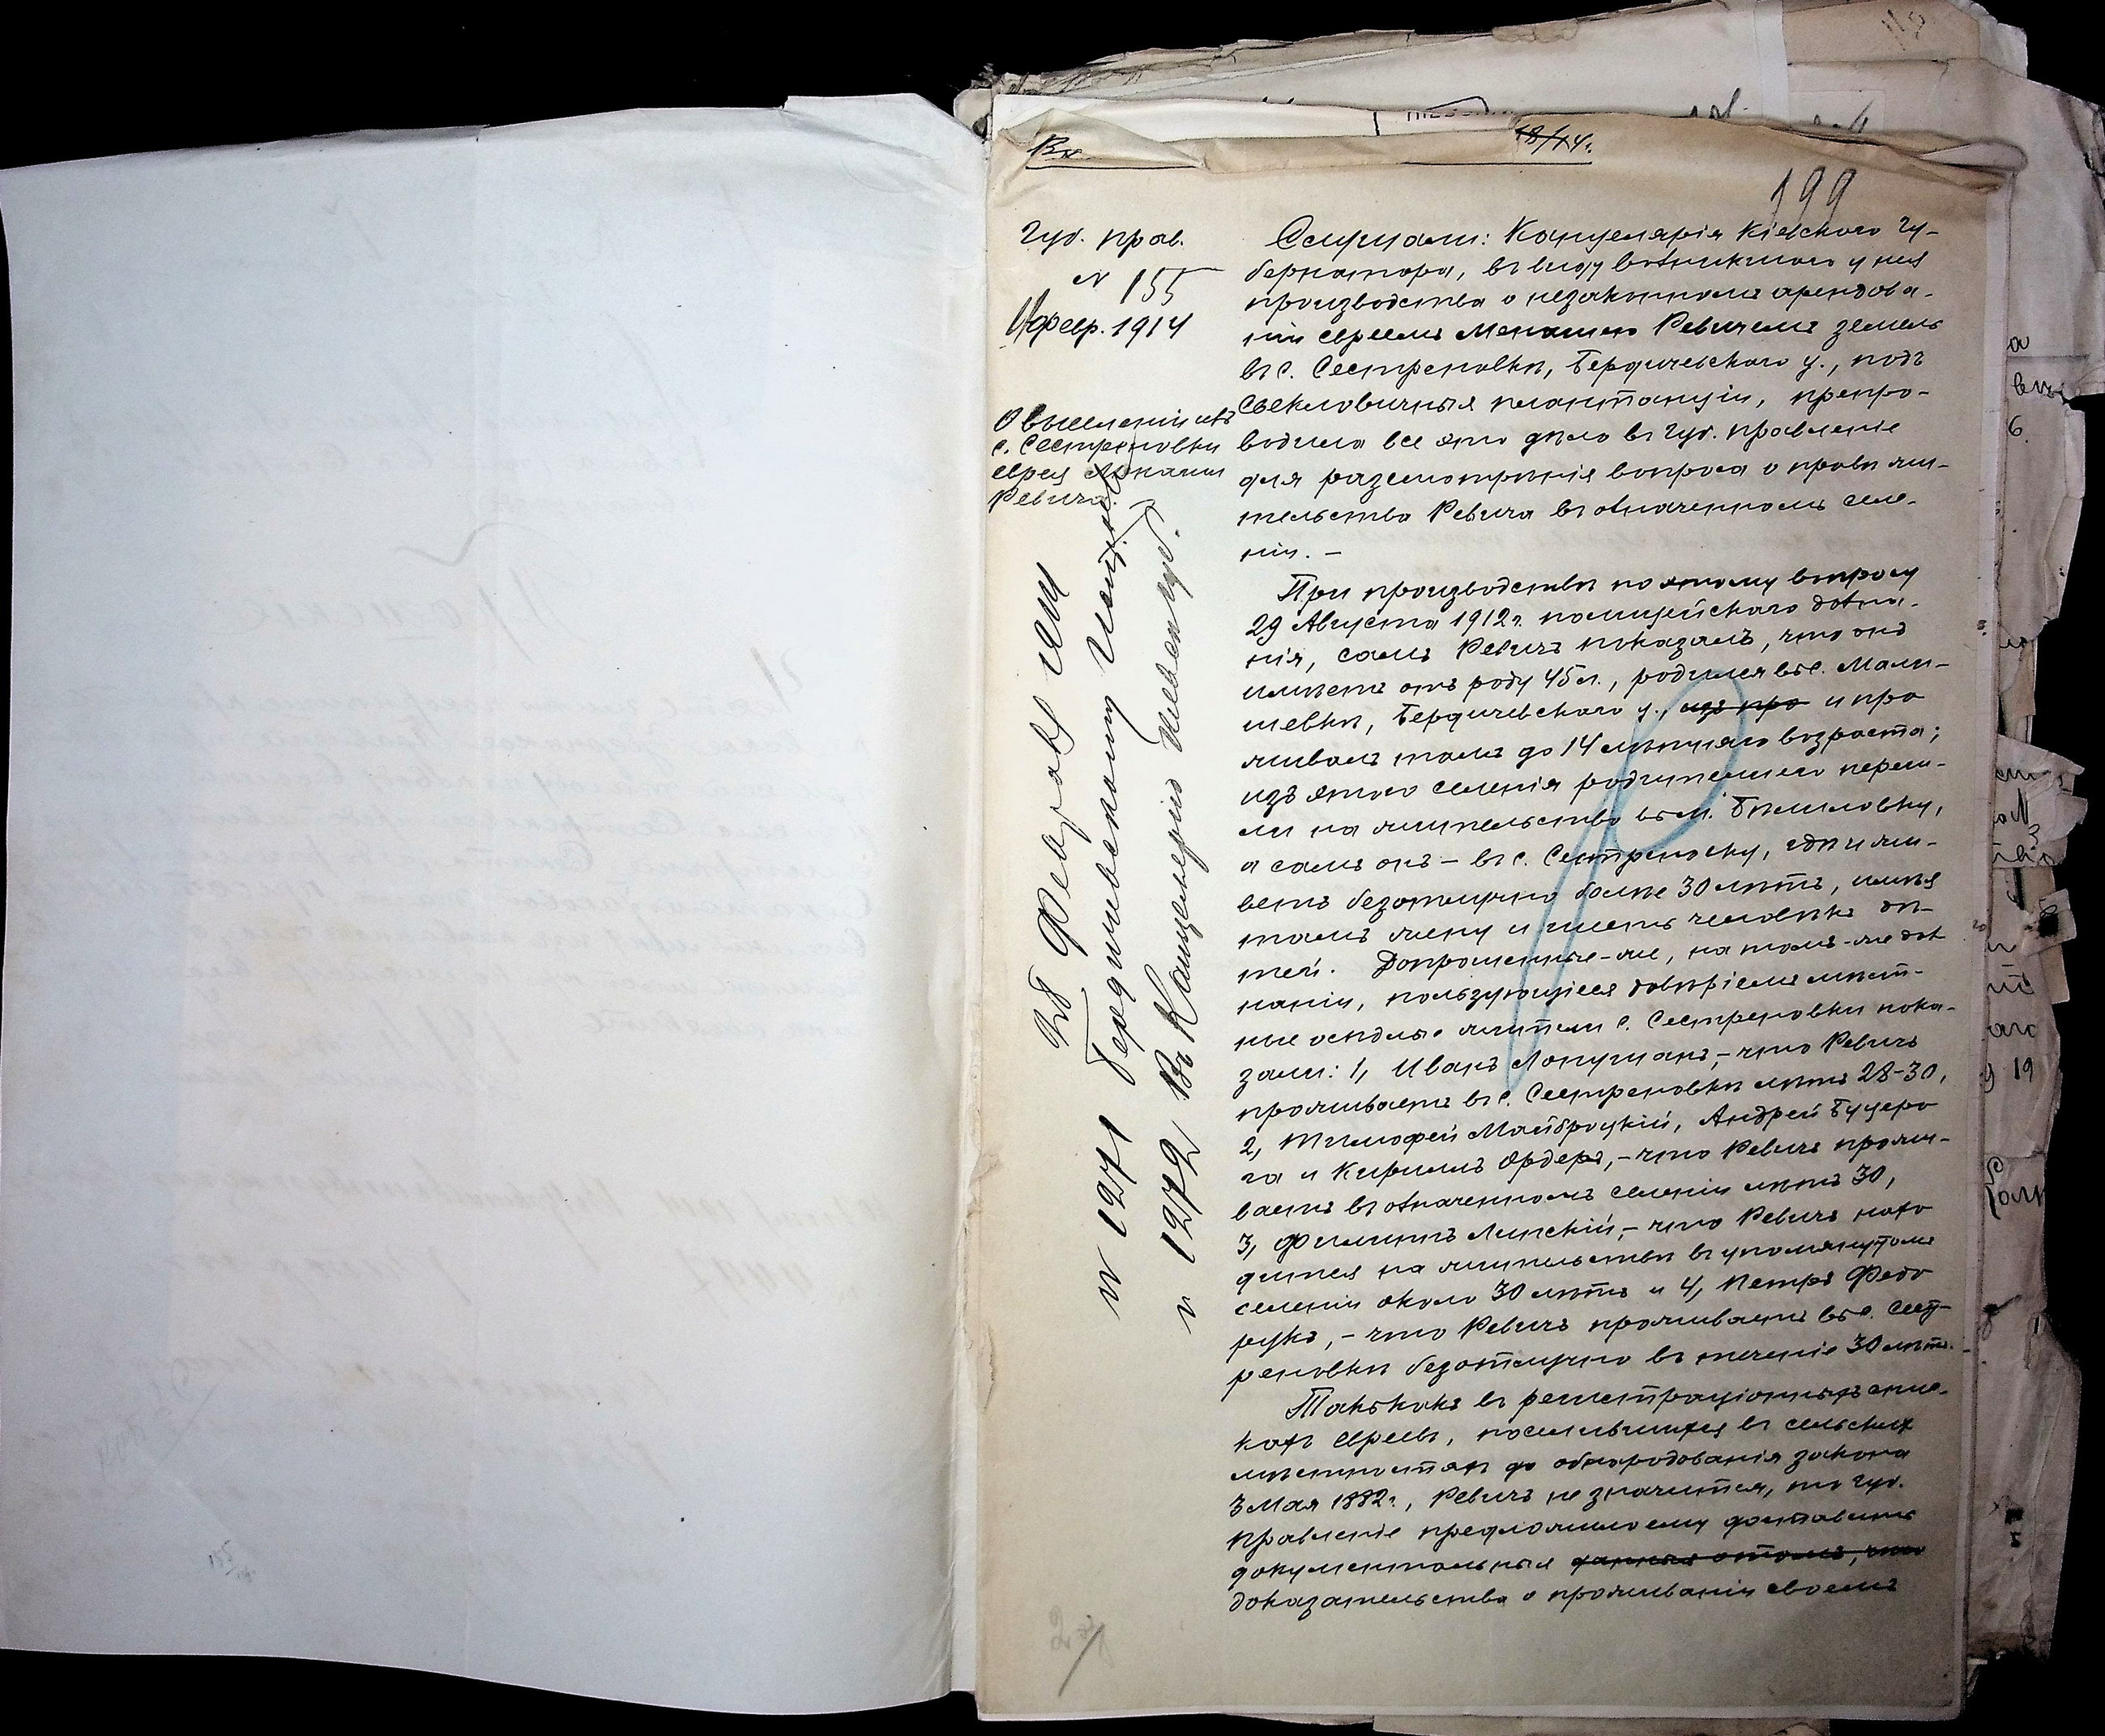 Вх.
18/14.
199
Губ. прав.
№ 155
февр. 1914
О выселеніи изъ
с. Сестреновки
еврея Монаши
Ревича.
28 Февраля 1914
№ 1271 Бердичевскому Исправ.
№ 1272 Въ Канцелярію Кіевск. Губ.
Слушали: Канцелярія Кіевскаго Гу-
бернатора, въ виду возникшаго у нея
производства о незаконномъ арендова-
ніи евреемъ Менашею Ревичемъ земель
въ с. Сестреновкѣ, Бердичевскаго у., подъ
свекловичныя плантаціи, препро-
водила все это дѣло въ Губ. Правленіе
для разсмотрѣнія вопроса о правѣ жи-
тельства Ревича въ означенномъ селе-
ніи. –
При производствѣ по этому вопросу
29 Августа 1912 г. полицейскаго дозна-
нія, самъ Ревичъ показалъ, что онъ
имѣетъ отъ роду 45 л., родился въ с. Мали-
шевкѣ, Бердичевскаго у., изъ про и про
живалъ тамъ до 14 лѣтняго возраста;
изъ этого селенія родители его переш-
ли на жительство въ м. Бѣлиловку,
а самъ онъ – въ с. Сестреновку, гдѣ и жи-
ветъ безотлучно болѣе 30 лѣтъ, имѣя
тамъ жену и шесть человѣкъ дѣ-
тей. Допрошенные-же, на томъ-же доз
наніи, пользующіеся довѣріемъ мѣст-
ные осѣдлые жители с. Сестреновки пока-
зали: 1, Иванъ Лопушанъ, – что Ревичъ
проживаетъ въ с. Сестреновкѣ лѣтъ 28-30,
2, Тимофей Майбродкій, Андрей Бугеро
га и Кириллъ Ордеръ, – что Ревичъ прожи-
ваетъ въ означенномъ селеніи лѣтъ 30,
3, Филиппъ Липскій, – что Ревичъ нахо
дится на жительствѣ въ упомянутомъ
селеніи около 30 лѣтъ и 4, Петръ Федо
рукъ, – что Ревичъ проживаетъ въ с. Сест-
реновкѣ безотлучно въ теченіе 30 лѣтъ.
Такъ какъ въ регистраціонныхъ спис-
кахъ евреевъ, поселившихся въ сельскихъ
мѣстностяхъ до обнародованія закона
3 Мая 1882 г., Ревичъ не значится, то Губ.
Правленіе предложило ему доставить
документальныя данныя о томъ, что
доказательства о проживаніи своемъ